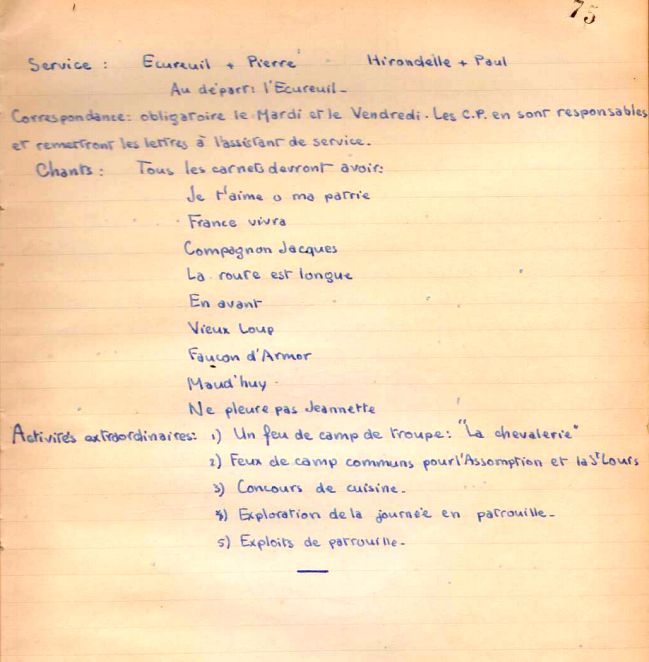 75
Service : Ecureuil + Pierre Hirondelle + Paul
Au départ: l'Ecureuil-
Correspondance: obligatoire le Mardi et le Vendredi. Les C.P. en sont responsables
et remettront les lettres à l'assistant de service.
Chants: Tous les carnets devront avoir:
Je t'aime o ma patrie
France vivra
Compagnon Jacques
La route est longue
En avant
Vieux Loup
Faucon d'Armor
Maud'huy
Ne pleure pas Jeannette
Activités extraordinaires: 1) Un feu de camp de troupe: "La chevalerie"
2) Feux de camp communs pour l'Assomption et la St Louis
3) Concours de cuisine.
4) Exploration de la journée en patrouille-
5) Exploits de patrouille-